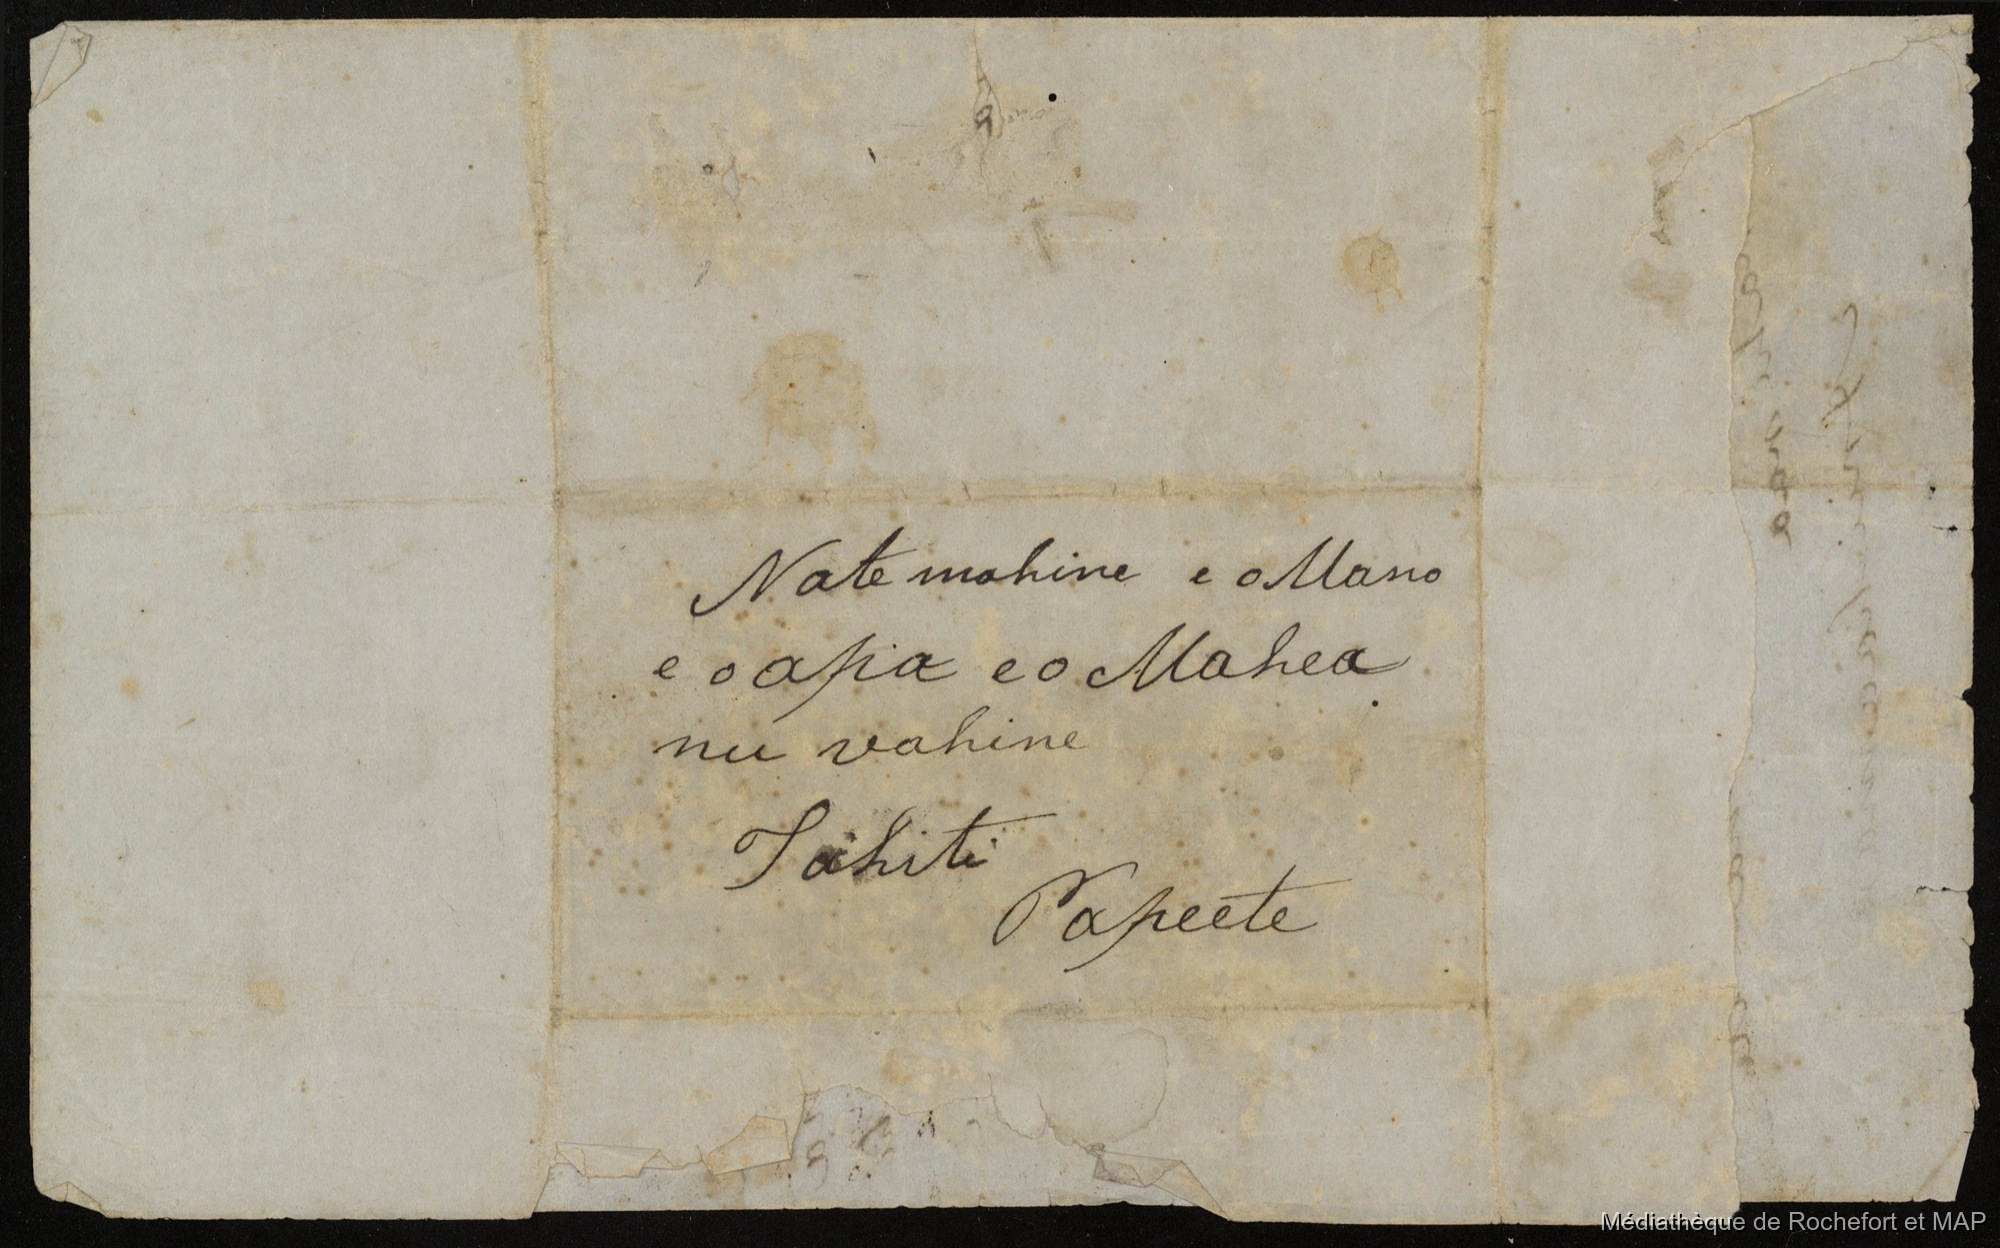 Nate mahine e o Mano
e o apia e o Mahea
nu vahine
Tahiti
Papeete
Médiathèque de Rochefort et MAP